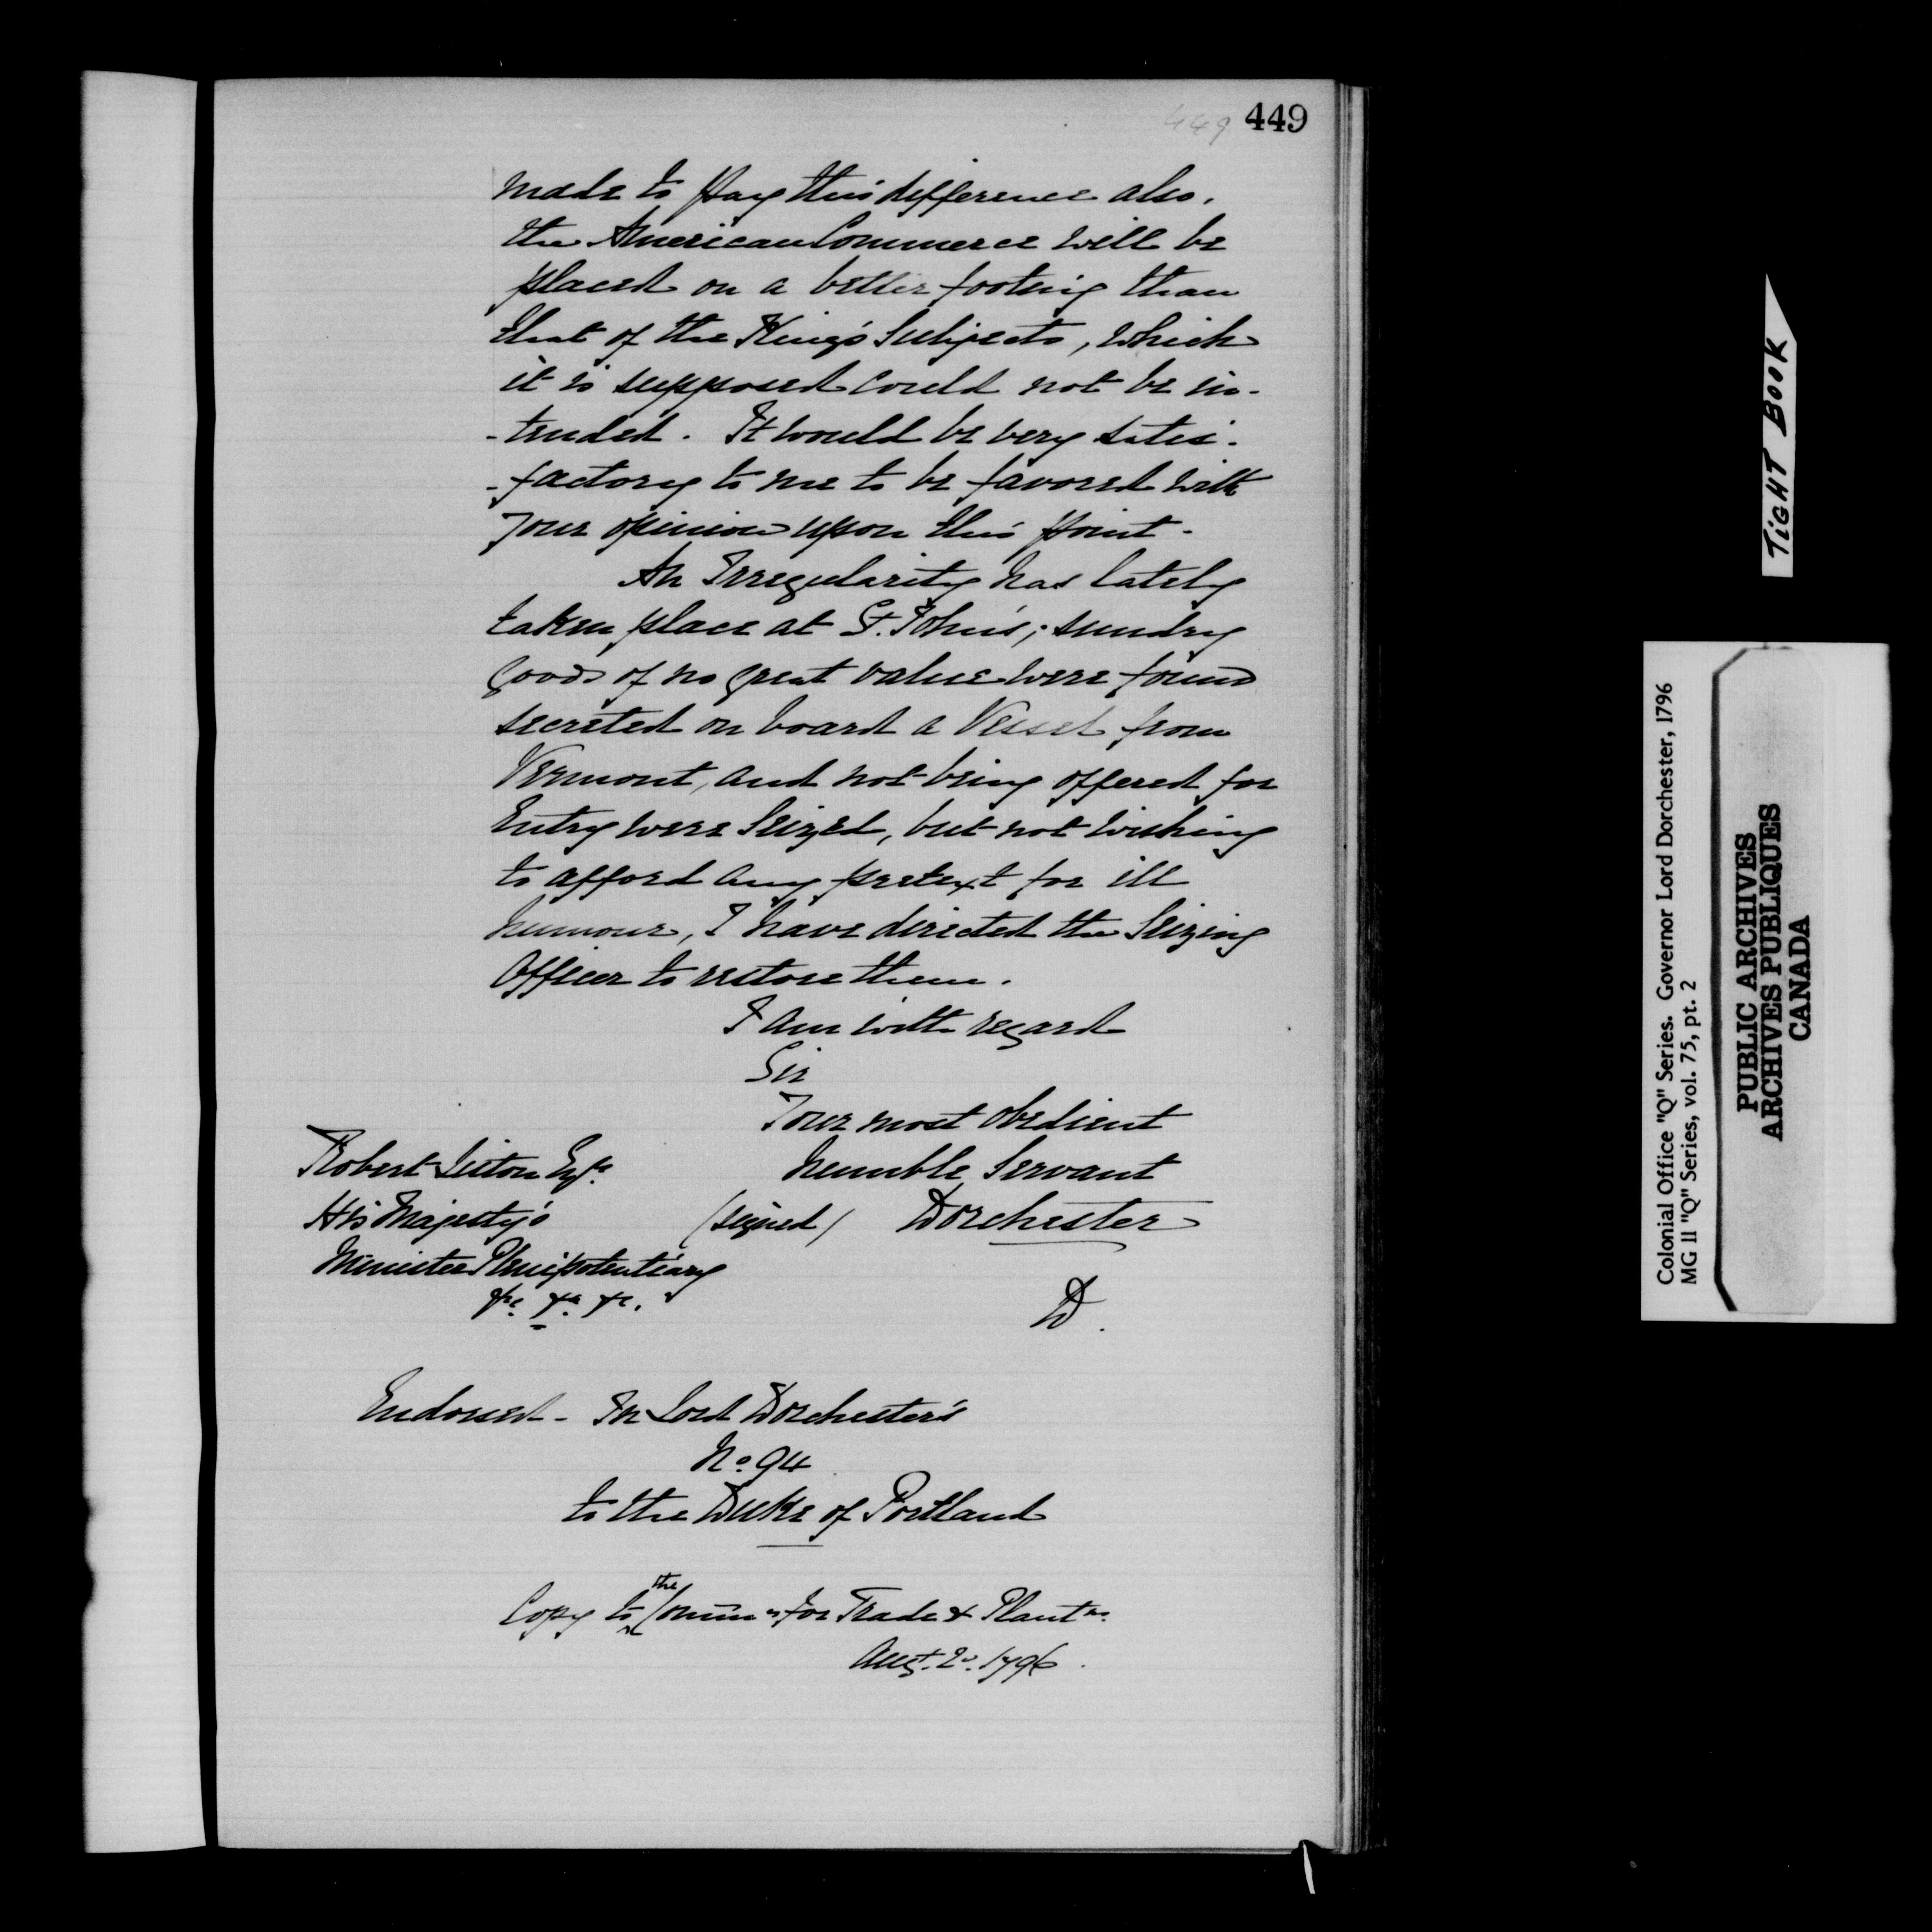 449 449
made to pay this difference also,
the American Commerce will be
placed on a better footing than
that of the King's Subjects, which
it is supposed could not be in-
-tended. It would be very satis-
-factory to me to be favored with
your opinion upon this point.
An Irregularity has lately
taken place at St. John's; sundry
goods of no great value were found
secreted on board a Vessel from
Vermont, and not being offered for
Entry were Seized, but not wishing
to afford any pretext for ill
humour, I have directed the Seizing
Officer to restore them.
I am with regard
Sir
Your most obedient
humble Servant
(signed) Dorchester
Robert Liston Esqr.
His Majesty's
Minister Plenipotentiary
&c. &c. &c.
D.
Endorsed - In Lord Dorchester's
No. 94
to the Duke of Portland
Copy to the Comm rs for Trade & Plant ns.
Augt. 2d. 1796.
TIGHT BOOK
Colonial Office "Q" Series. Governor Lord Dorchester, 1796
MG 11 "Q" Series, vol. 75, pt. 2
PUBLIC ARCHIVES
ARCHIVES PUBLIQUES
CANADA